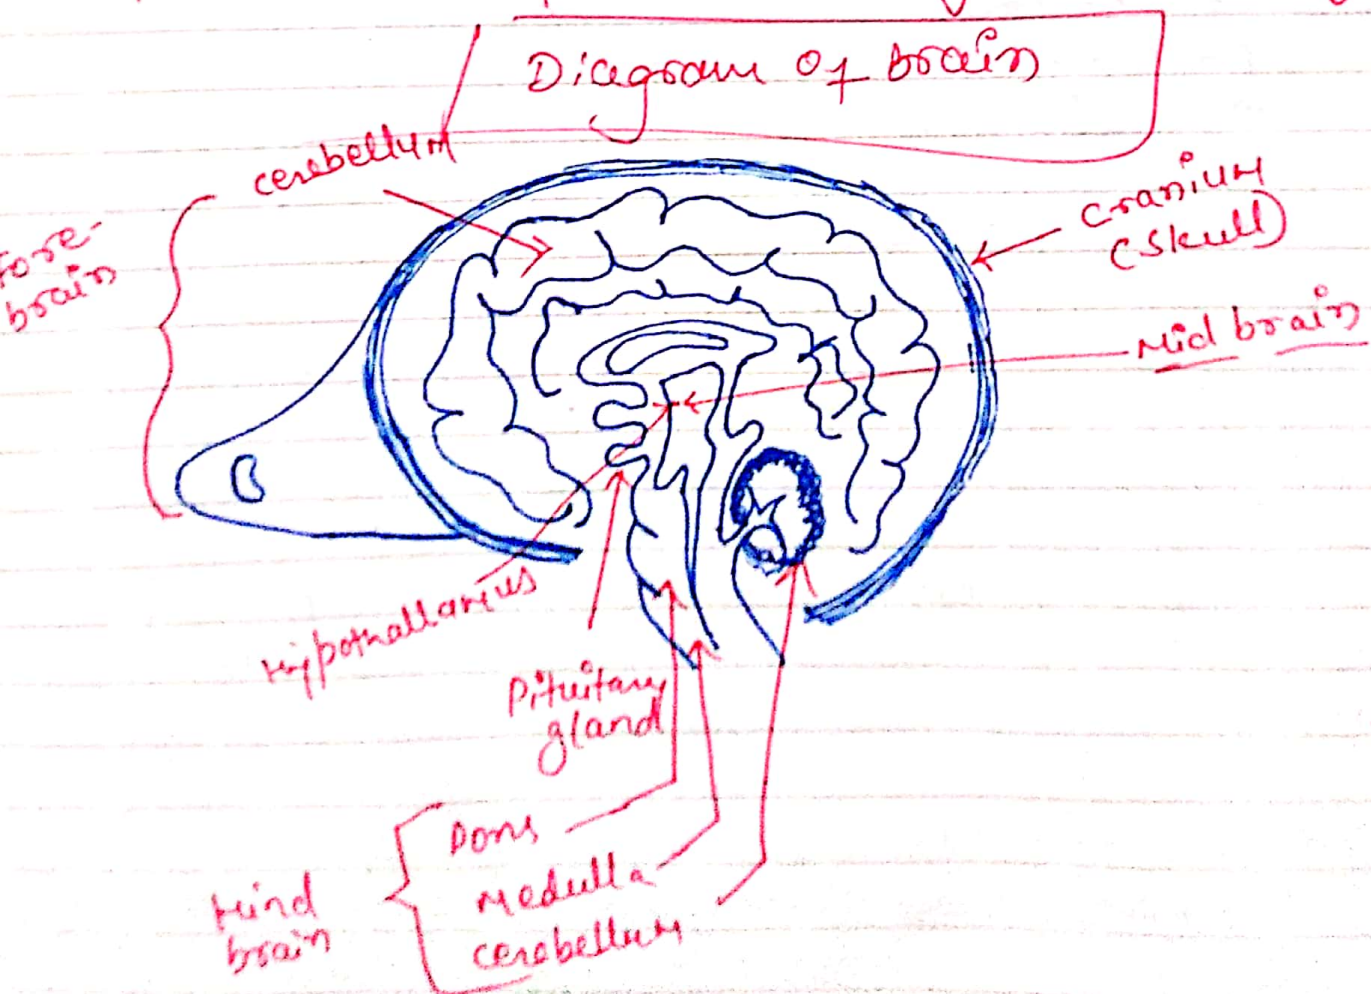 Diagram of brain
cerebellum
Fore-
brain
cranium
(skull)
Mid brain
Hypothallamus
Pituitary
gland
Hind
brain
Pons
Medulla
cerebellum